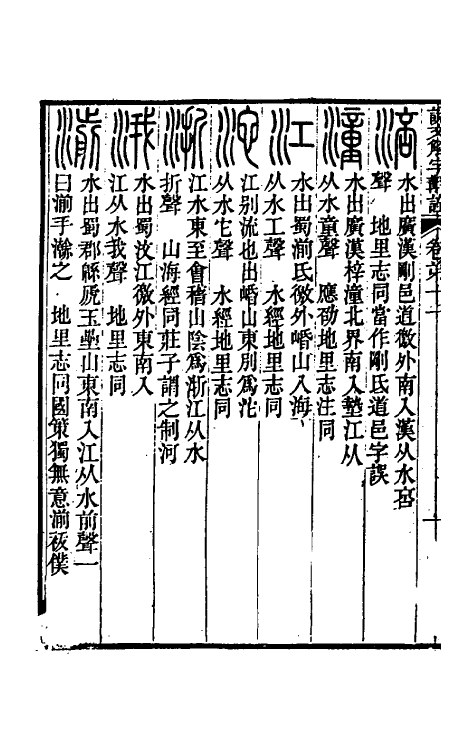 說文解字斠詮 卷第十一
涪 水出廣漢剛邑道徼外南入漢从水咅
聲 地里志同當作剛氐道邑字誤
潼 水出廣漢梓潼北界南入墊江从
水童聲 應劭地里志注同
江 水出蜀湔氐徼外㟭山入海
从水工聲 水經地里志同
沱 江別流也出㟭山東別爲沱
从水它聲 水經地里志同
浙 江水東至會稽山陰爲浙江从水
折聲 山海經同莊子謂之制河
涐 水出蜀汶江徼外東南入
江从水我聲 地里志同
湔 水出蜀郡緜虒玉壘山東南入江从水前聲一
曰湔手澣之 地里志同國策獨無意湔祓僕